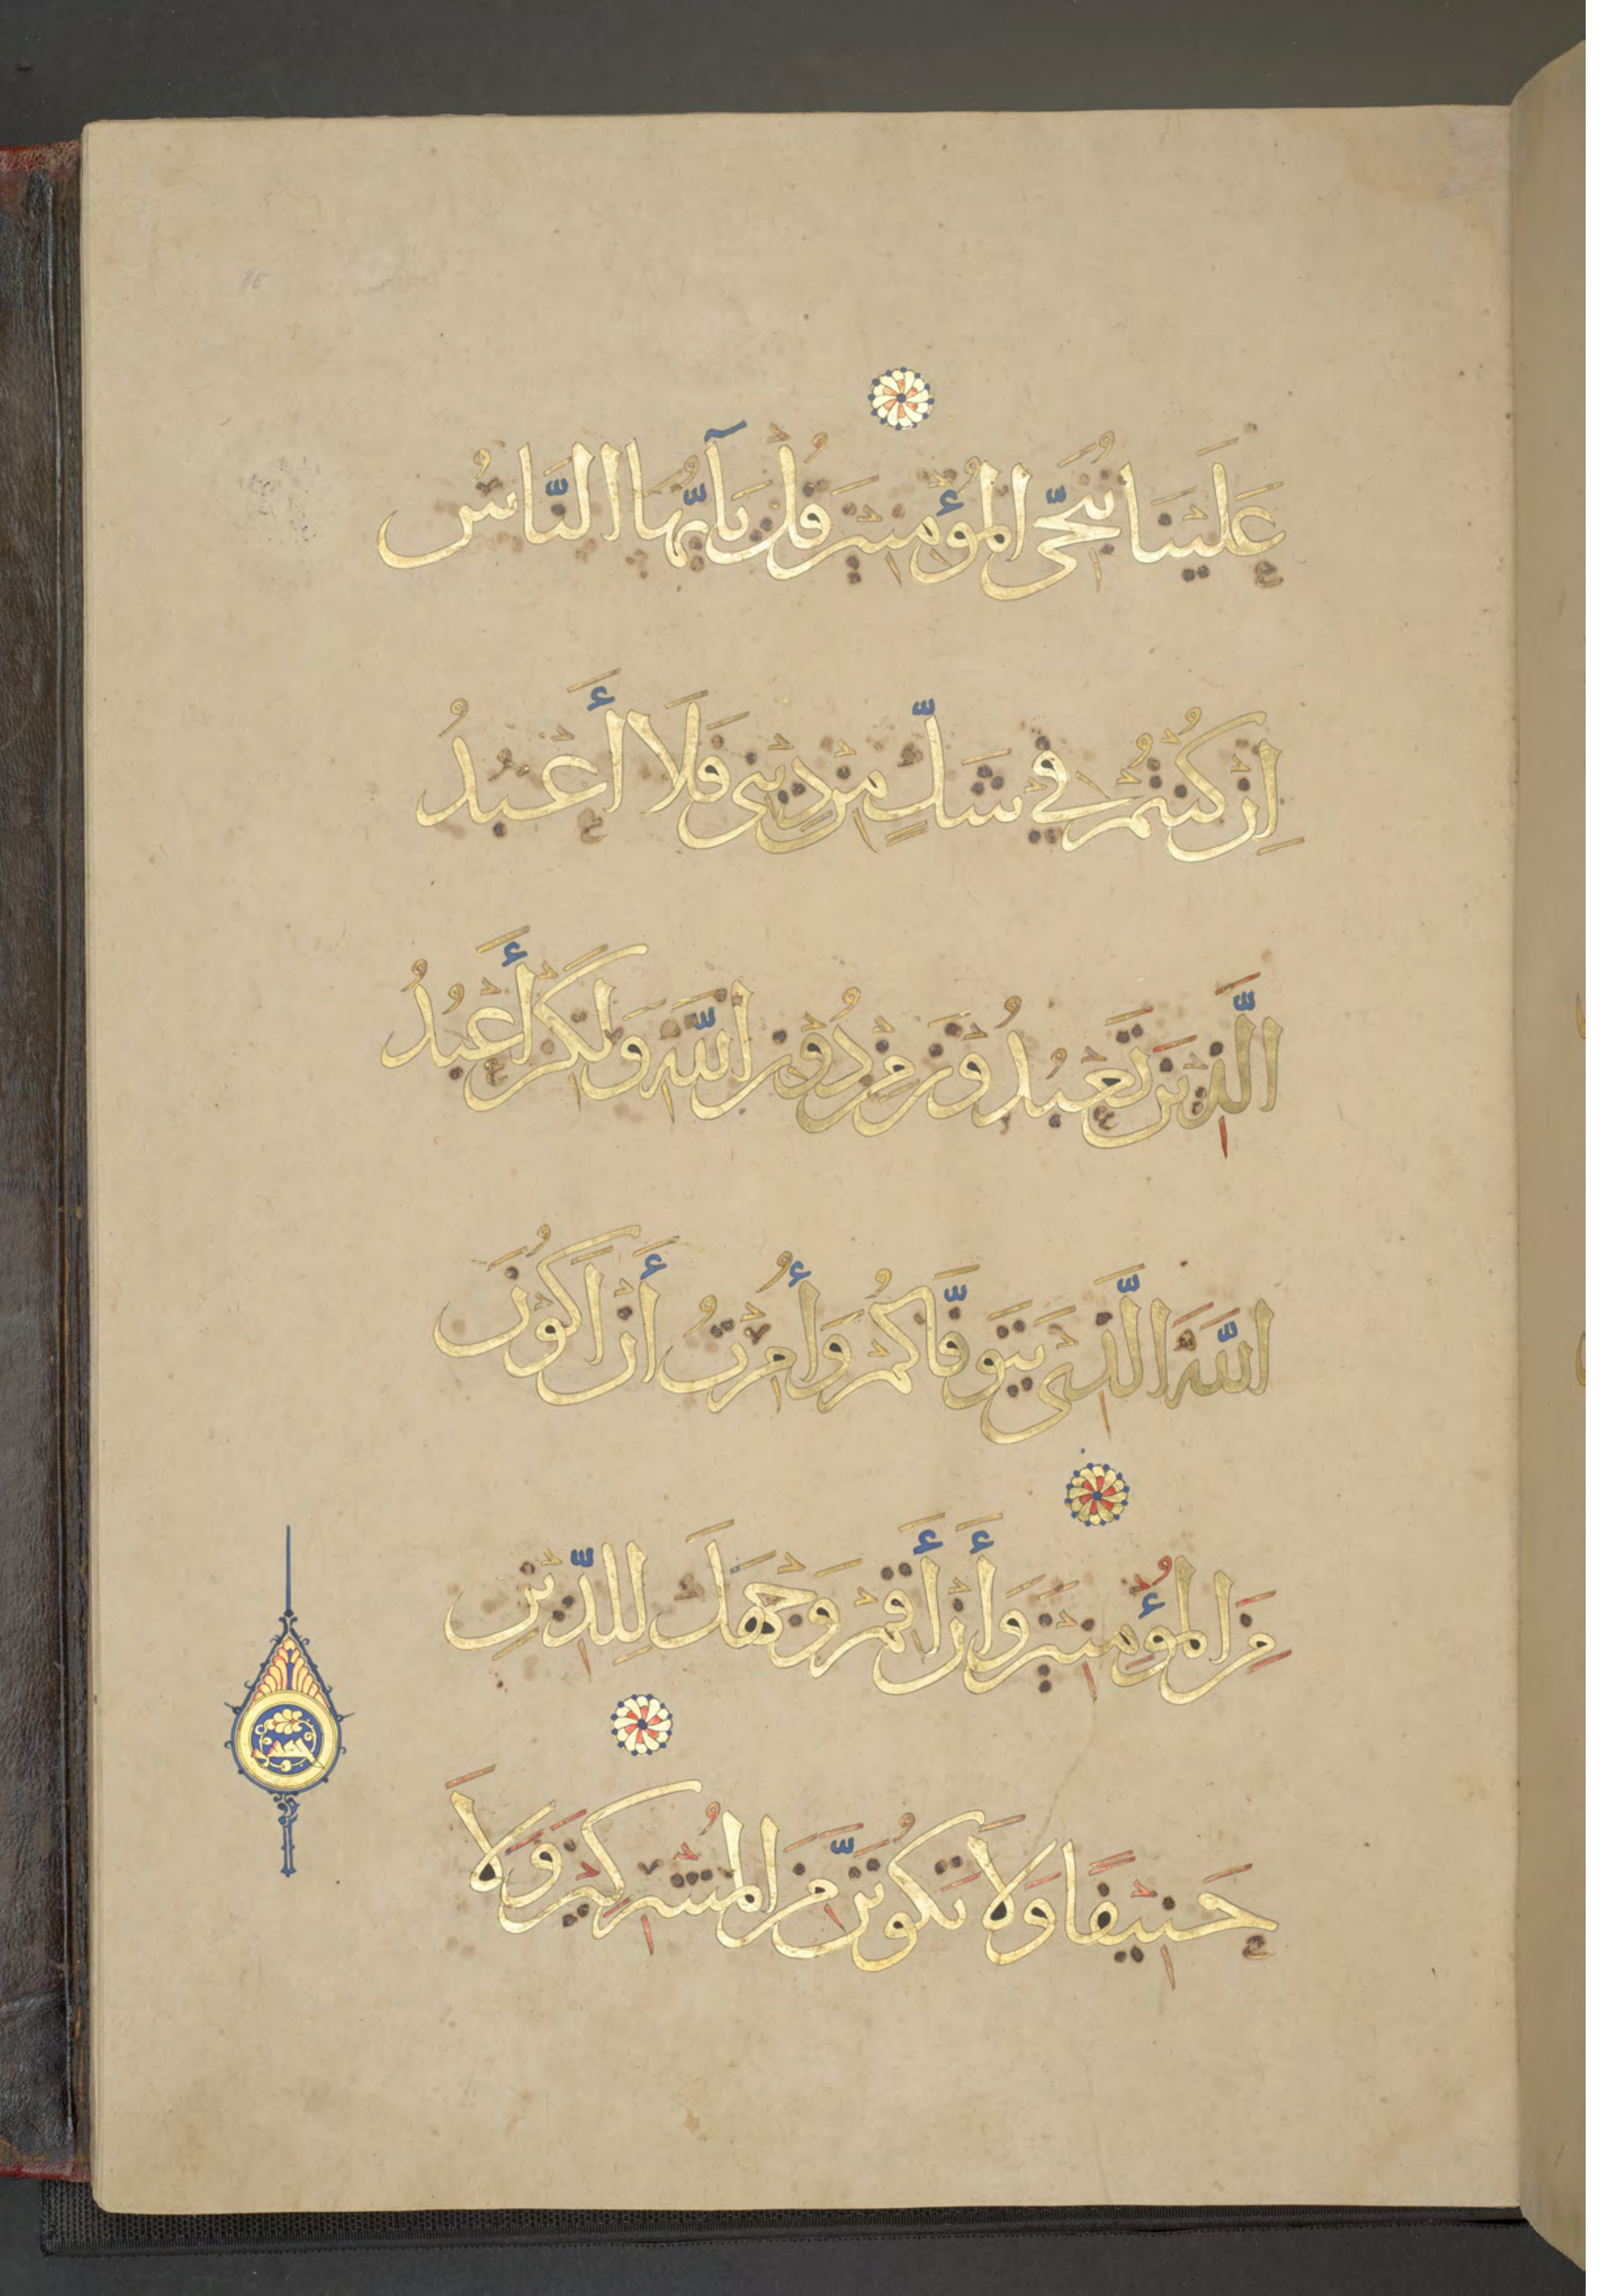 عَلَيْنَا نُنَجِّي الْمُؤْمِنِيْنَ قُلْ يَآ أَيُّهَا النَّاسُ
اِنْ كُنْتُمْ فِي شَكٍّ مِنْ دِيْنِى فَلَا أَعْبُدُ
الَّذِيْنَ تَعْبُدُوْنَ مِنْ دُوْنِ اللّٰهِ وَلَكِنْ أَعْبُدُ
اللَّهَ الَّذِىْ يَتَوَفَّاكُمْ وَأُمِرْتُ أَنْ اَكُوْنَ
مِنَ الْمُؤْمِنِيْنَ وَأَنْ أَقِمْ وَجْهَكَ لِلدِّيْنِ
حَنِيْفًا وَلَا تَكُوْنَنَّ مِنَ الْمُشْرِكِيْنَ وَلَا